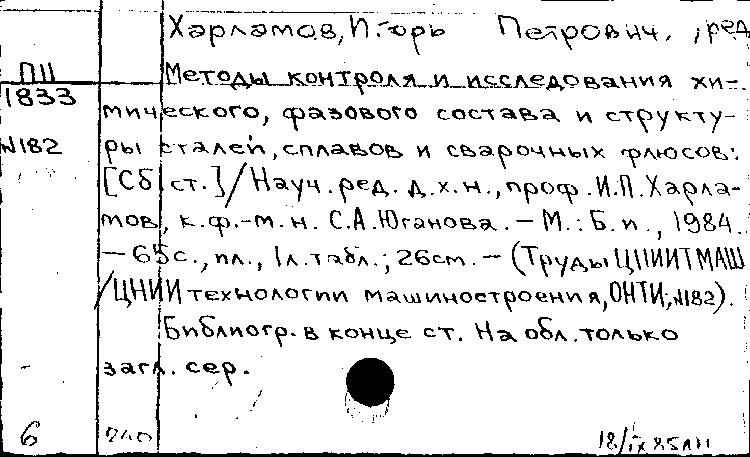 Харламов, Игорь Петрович., ред
П11
1833
Методы контроля и исследования хи-
мического, фазового состава и структу-
№182
ры сталей, сплавов и сварочных флюсов:
[Сб. ст.] / Науч. ред. д.х.н., проф. И.П. Харла-
мов, к.ф.-м.н. С.А. Юганова. – М.: Б.и., 1984.
– 65с., ил., 1л. табл.; 26см. – (Труды ЦНИИТМАШ
/ЦНИИ технологии машиностроения, ОНТИ; №182).
Библиогр. в конце ст. На обл. только
загл. сер.
6
18/IX 85